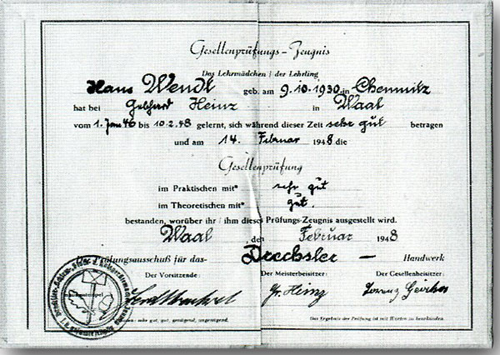 Gesellenprüfungs-Zeugnis
Das Lehrmädchen / der Lehrling
Hans Wendt geb. am 9.10.1930 in Chemnitz
hat bei Gebhard Heinz in Waal
vom 1. Jan 46 bis 10.2.48 gelernt, sich während dieser Zeit sehr gut betragen
und am 14. Februar 1948 die
Gesellenprüfung
im Praktischen mit* sehr gut
im Theoretischen mit* gut.
bestanden, worüber ihr / ihm dieses Prüfungs-Zeugnis ausgestellt wird.
Waal den Februar 1948
Prüfungsausschuß für das Drechsler — Handwerk
Der Vorsitzende: Der Meisterbeisitzer: Der Gesellenbeisitzer:
Heinz Lorenz
sehr gut, gut, genügend, ungenügend. Das Ergebnis der Prüfung ist mit Worten zu bezeichnen.